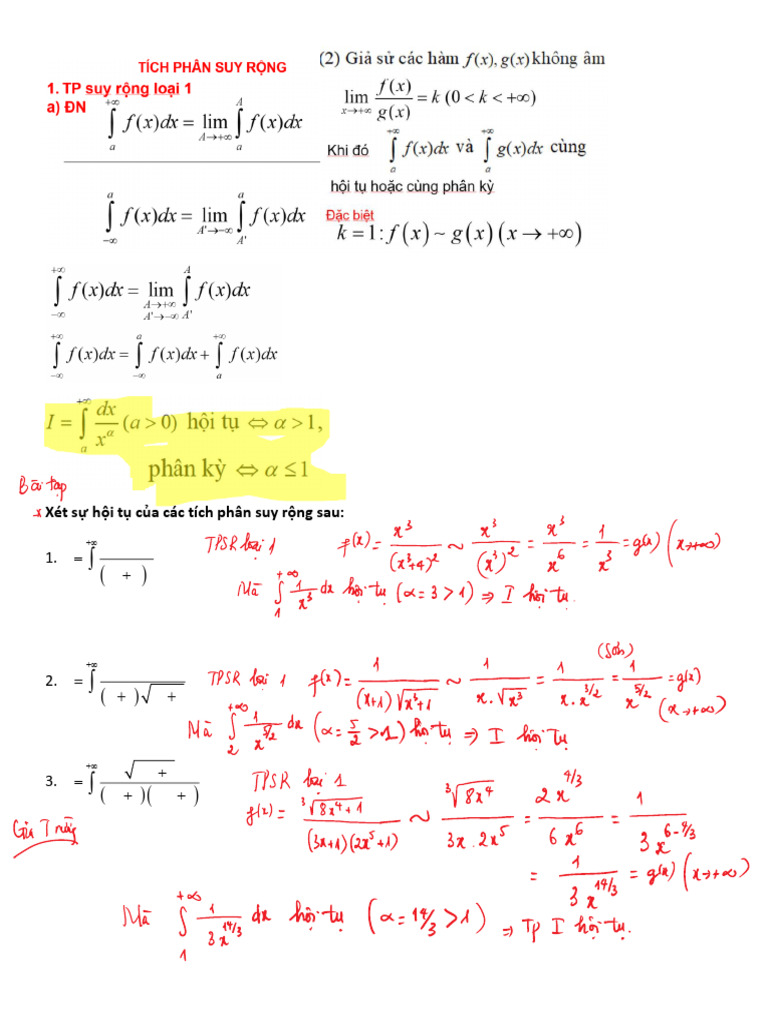 TÍCH PHÂN SUY RỘNG
1. TP suy rộng loại 1
a) ĐN
∫_a^{+∞} f(x)dx = lim_{A→+∞} ∫_a^A f(x)dx
∫_{-∞}^a f(x)dx = lim_{A'→-∞} ∫_{A'}^a f(x)dx
∫_{-∞}^{+∞} f(x)dx = lim_{A→+∞, A'→-∞} ∫_{A'}^A f(x)dx
∫_{-∞}^{+∞} f(x)dx = ∫_{-∞}^a f(x)dx + ∫_a^{+∞} f(x)dx
I = ∫_a^{+∞} dx/x^α (a > 0) hội tụ ⇔ α > 1,
phân kỳ ⇔ α ≤ 1
(2) Giả sử các hàm f(x), g(x) không âm
lim_{x→+∞} f(x)/g(x) = k (0 < k < +∞)
Khi đó ∫_a^{+∞} f(x)dx và ∫_a^{+∞} g(x)dx cùng
hội tụ hoặc cùng phân kỳ
Đặc biệt
k = 1: f(x) ~ g(x) (x → +∞)
Bài tập
x Xét sự hội tụ của các tích phân suy rộng sau:
1. = ∫^{+∞} / ( + ) TPSR loại 1 f(x) = x³/(x³+4)² ~ x³/(x³)² = x³/x⁶ = 1/x³ = g(x) (x→+∞)
Mà ∫_1^{+∞} 1/x³ dx hội tụ (α = 3 > 1) ⇒ I hội tụ.
(Soh)
2. = ∫^{+∞} / ( + )√ + TPSR loại 1 f(x) = 1/((x+1)√(x³+1)) ~ 1/(x.√x³) = 1/(x.x^{3/2}) = 1/x^{5/2} = g(x) (x→+∞)
Mà ∫_2^{+∞} 1/x^{5/2} dx (α = 5/2 > 1) hội tụ ⇒ I hội tụ
3. = ∫^{+∞} √ + / ( + )( + ) TPSR loại 1
f(x) = ³√(8x⁴+1)/((3x+1)(2x⁵+1)) ~ ³√(8x⁴)/(3x.2x⁵) = 2x^{4/3}/(6x⁶) = 1/(3x^{6-4/3})
= 1/(3x^{14/3}) = g(x) (x→+∞)
Mà ∫_1^{+∞} 1/(3x^{14/3}) dx hội tụ (α = 14/3 > 1) ⇒ Tp I hội tụ.